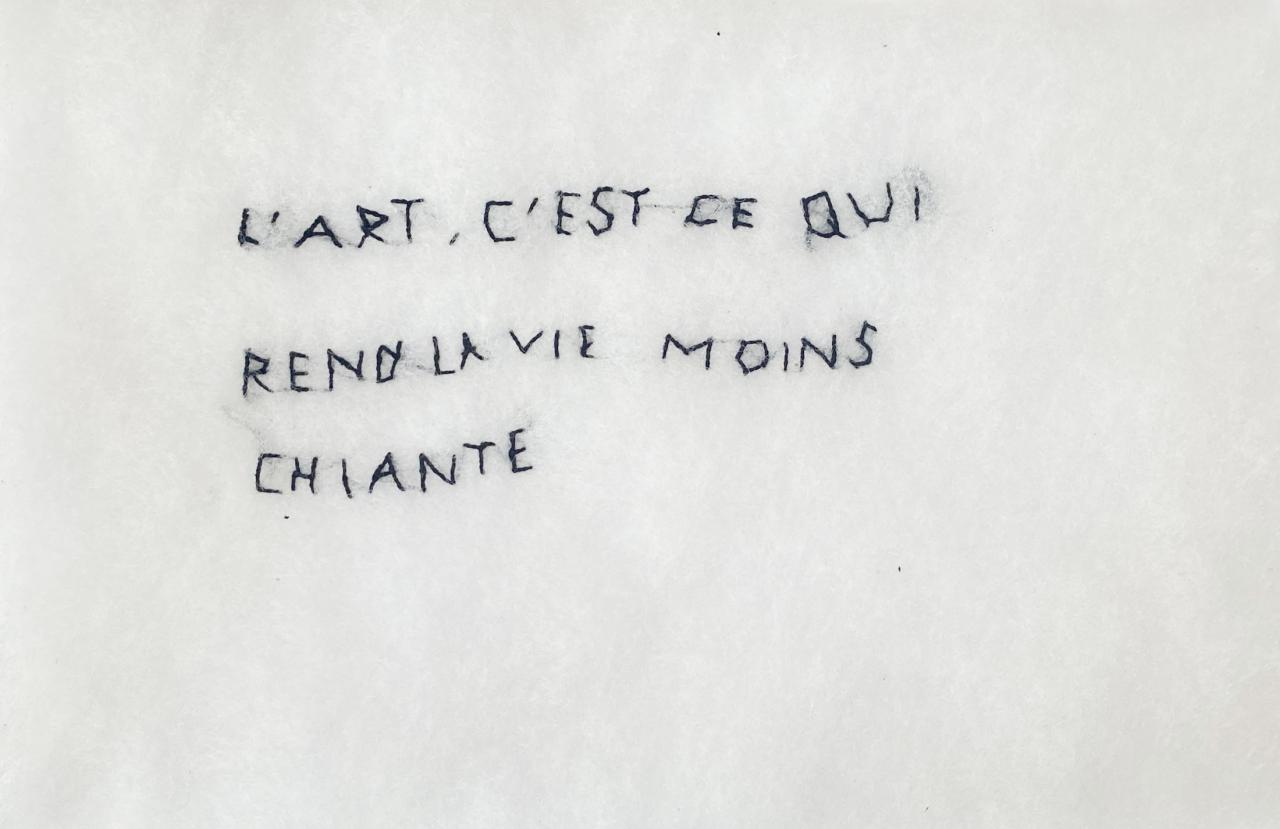 L'ART, C'EST CE QUI
REND LA VIE MOINS
CHIANTE